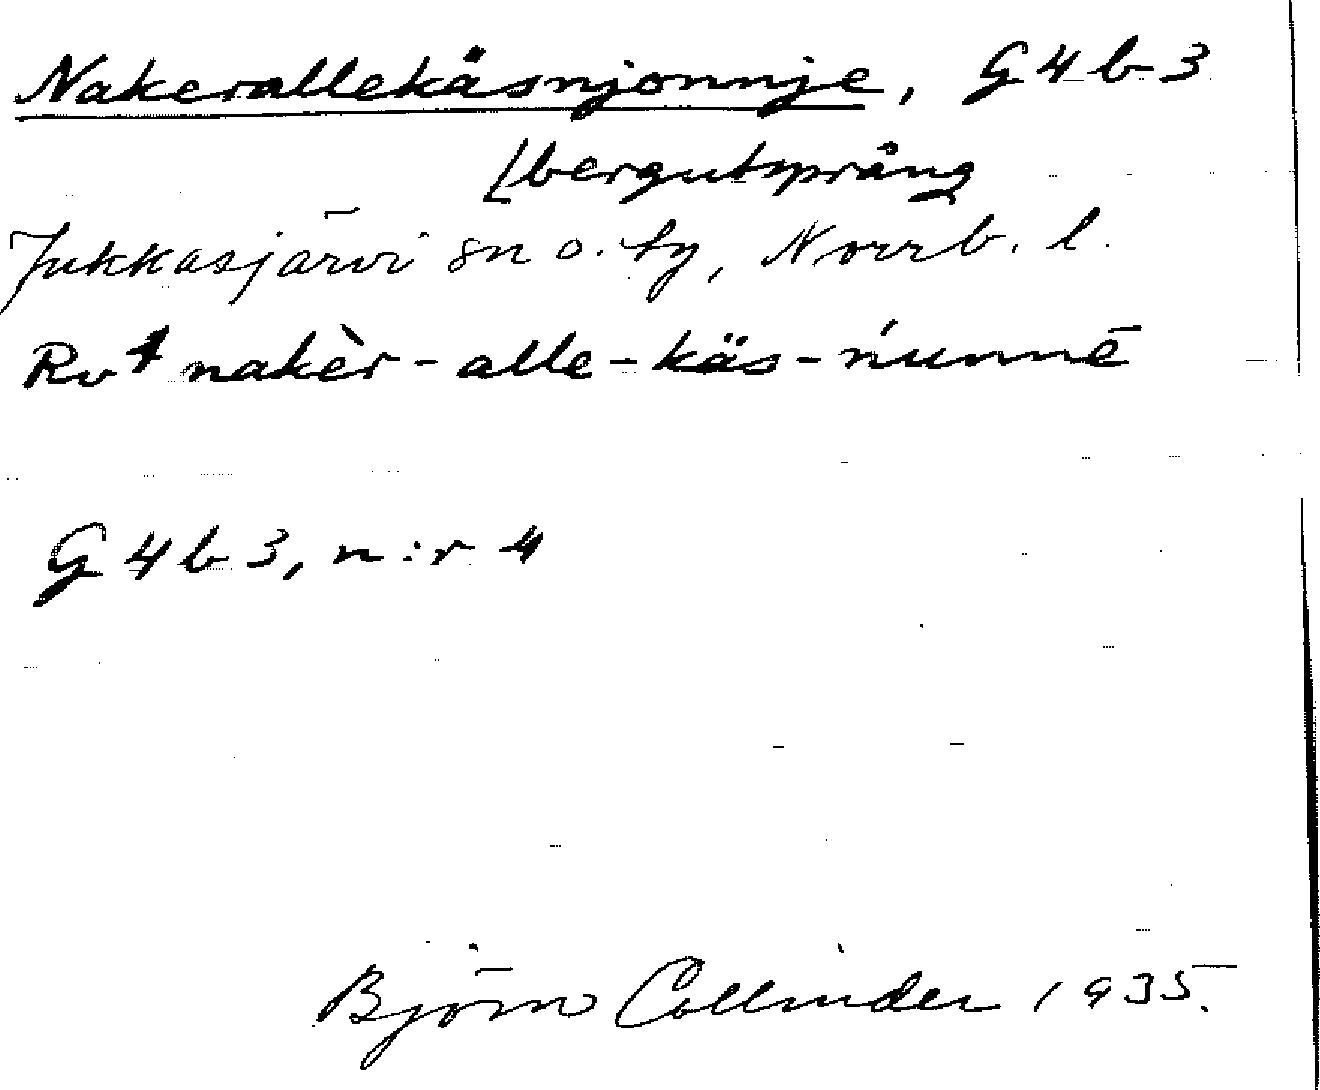 Nakerallekäsnjonnje, G4b3
[bergutsprång
Jukkasjärvi sn o. ty, Norrb. l.
Rv4 nakèr-alle-käs-ńunnē
G4b3, n:r 4
Björn Collinder 1935.